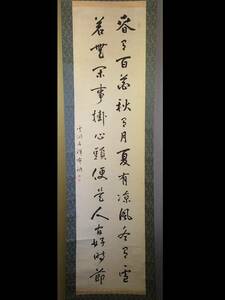 春有百花秋有月夏有凉風冬有雪
若無閑事掛心頭便是人间好時節